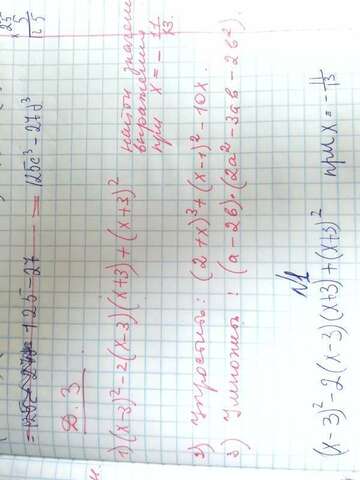 ×25
5
125
= 125 - 27 = 125c³ - 27d³
Д.З.
1) (x-3)² - 2(x-3)(x+3) + (x+3)²
найти значение
выражения
при x = - 11/13.
2) Упростить: (2+x)³ + (x-1)² - 10x.
3) Умножить: (a-2b)·(2a² - 3ab - 2b²)
№1
(x-3)² - 2(x-3)(x+3) + (x+3)² при x = - 11/13